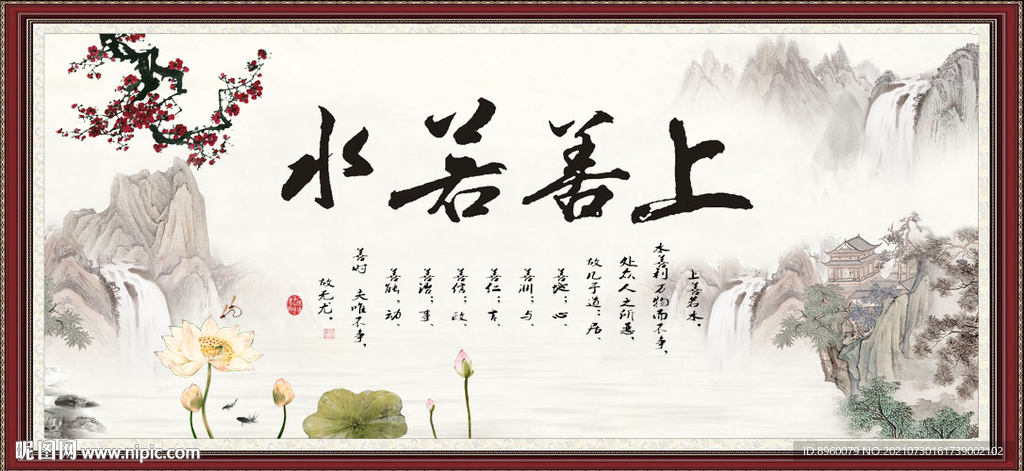 上善若水
上善若水。
水善利万物而不争,
处众人之所恶,
故几于道;居、
善地;心、
善渊;与、
善仁;言、
善信;政、
善治;事
善能;动、
善时 夫唯不争,
故无尤。
昵图网 www.nipic.com
ID:8960079 NO.20210730161739002102